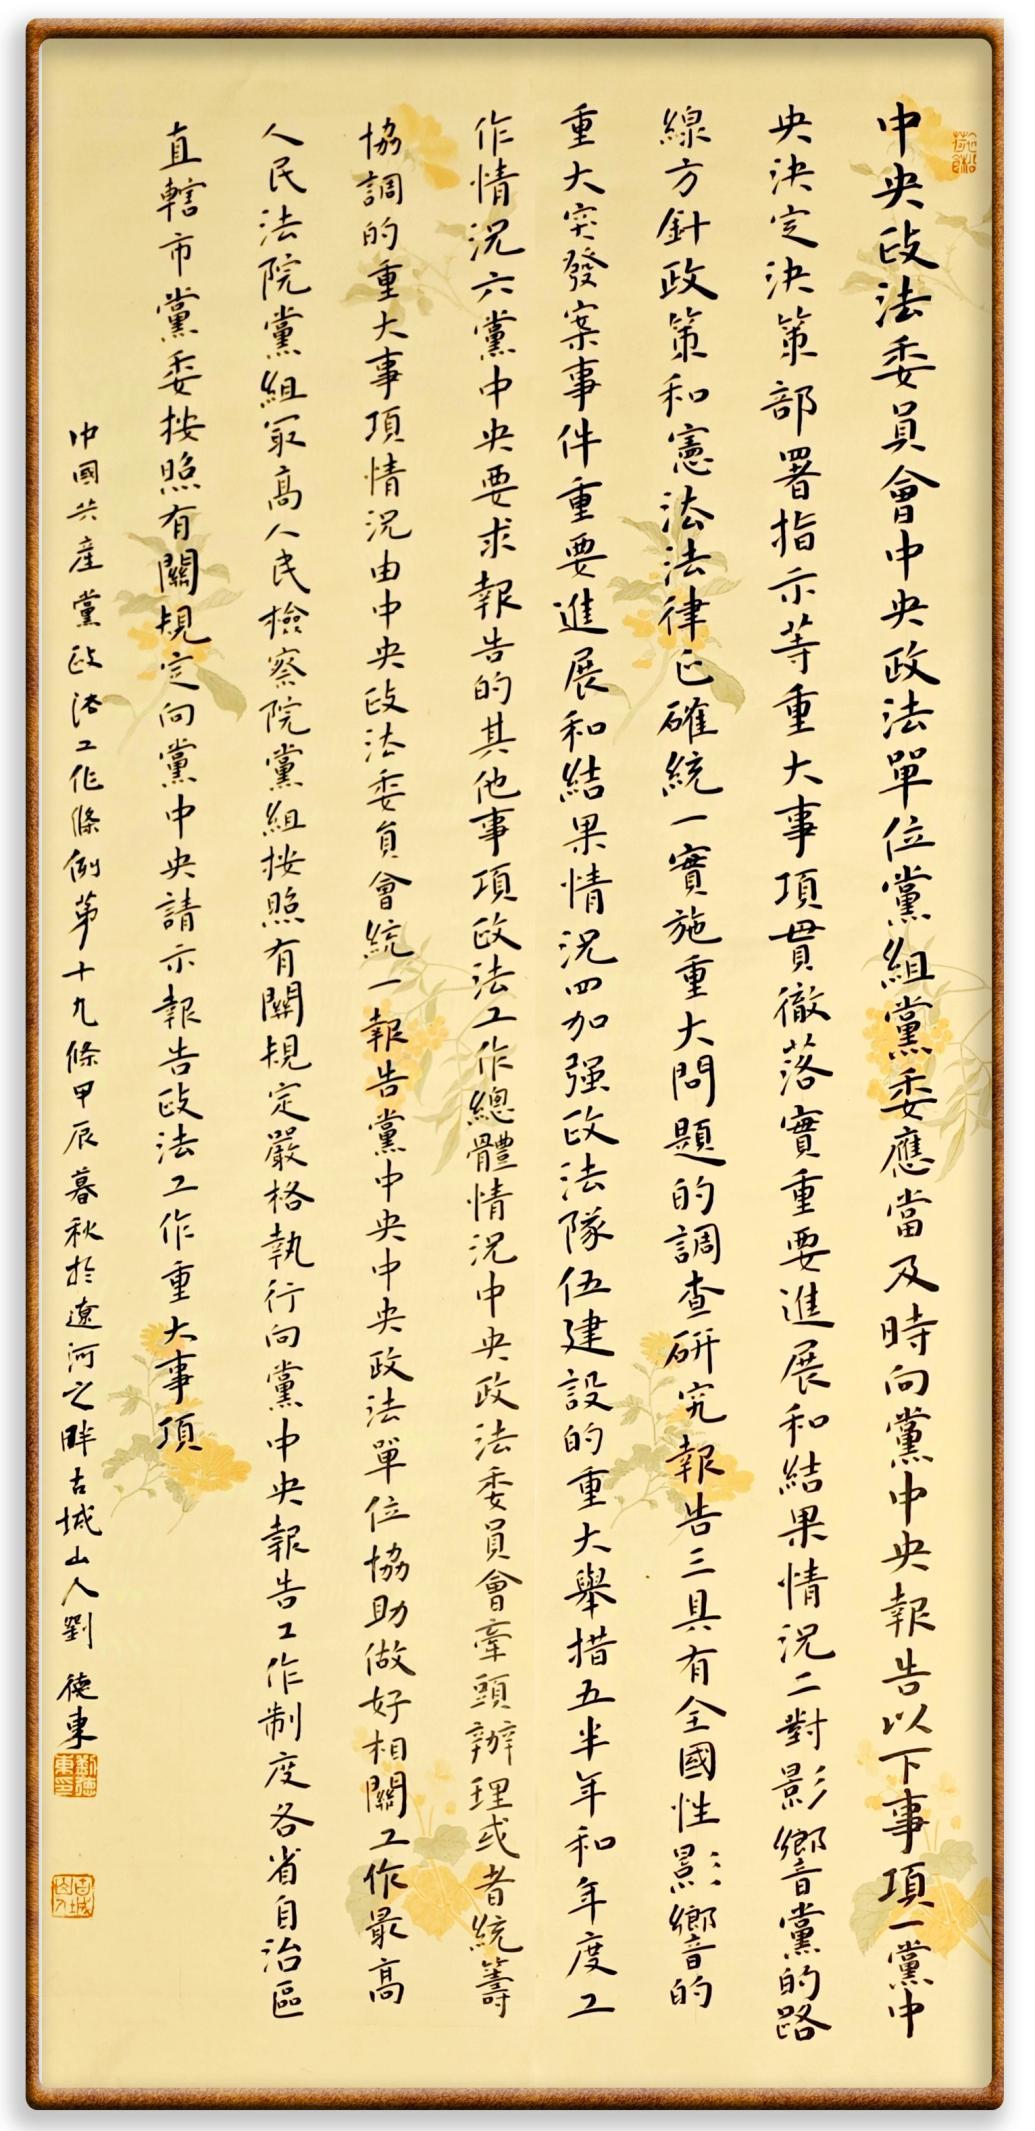 中央政法委員會中央政法單位黨組黨委應當及時向黨中央報告以下事項一黨中
央決定決策部署指示等重大事項貫徹落實重要進展和結果情況二對影響黨的路
線方針政策和憲法法律正確統一實施重大問題的調查研究報告三具有全國性影響的
重大突發案事件重要進展和結果情況四加强政法隊伍建設的重大舉措五半年和年度工
作情況六黨中央要求報告的其他事項政法工作總體情況中央政法委員會牽頭辦理或者統籌
協調的重大事項情況由中央政法委員會統一報告黨中央中央政法單位協助做好相關工作最高
人民法院黨組最高人民檢察院黨組按照有關規定嚴格執行向黨中央報告工作制度各省自治區
直轄市黨委按照有關規定向黨中央請示報告政法工作重大事項
中國共產黨政法工作條例第十九條甲辰暮秋於遼河之畔古城山人劉德東
劉德東印
古城山人